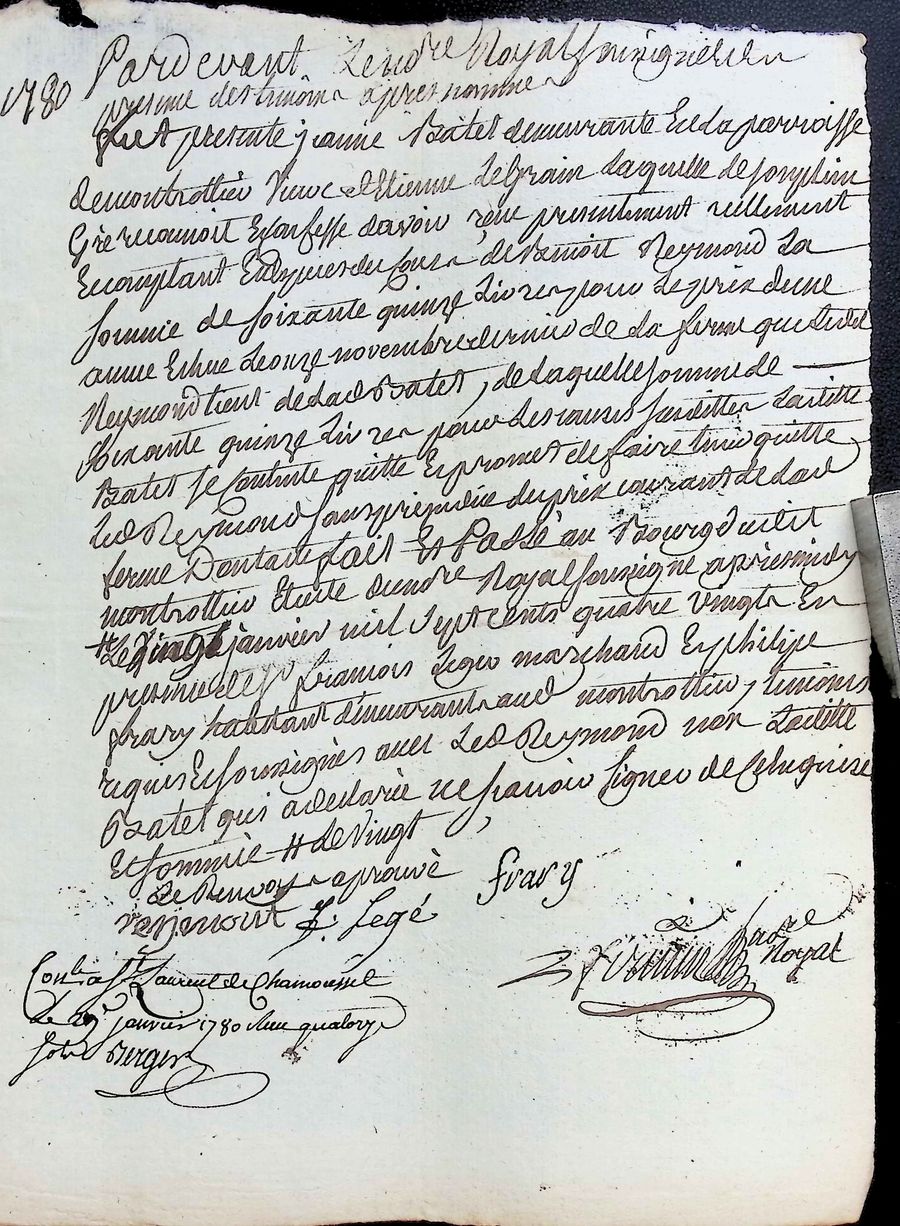 1780
Pardevant Le no.re Royal soussigné et en
presence des temoins apres nommes
fut presente jeanne Batet demeurante en la parroisse
de montrottier veuve d'Etienne Legrain laquelle de son plein
Gré reconnoit Et confesse davoir reçue presentement reellement
Et comptant En Espices du Cours de Benoit Reymond La
somme de soixante quinze Livres pour Le prix dune
année Echue Le onze novembre dernier de la ferme que Ledit
Reymond tient de lad Batet, de laquelle somme de
soixante quinze Livres pour Les causes susdittes Laditte
Batet se Contente quitte Et promet de faire tenir quitte
Led Reymond sans prejudice du prix courant de lad
ferme Dont acte fait Et Passé au Bourg dudit
montrottier Etude du no.re Royal soussigné apres midy
# Le vingt janvier mil sept cents quatre vingts En
presence de s.r francois Legé marchand Et philipe
frary habitant demeurants aud montrottier, temoins
requis Et soussignés avec Led Reymond non Laditte
Batet qui a declarée ne scavoir signer de Ce Enquise
Et sommée # Le Vingt
Le Renvoy aprouvé
reymont f. Legé frary
no.re Royal
Con.lé a S.t Laurent de Chamousset
Le 29 janvier 1780 Recu quatorze
sols Berger